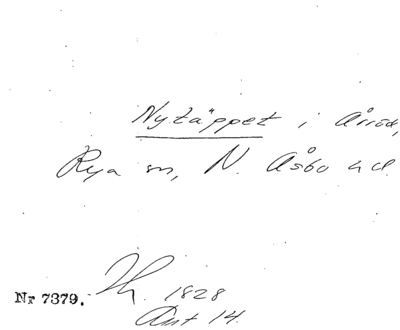 Nytäppet i Årröd,
Rya sn, N. Åsbo hd.
Th. 1828
Ant 14.
Nr 7379.